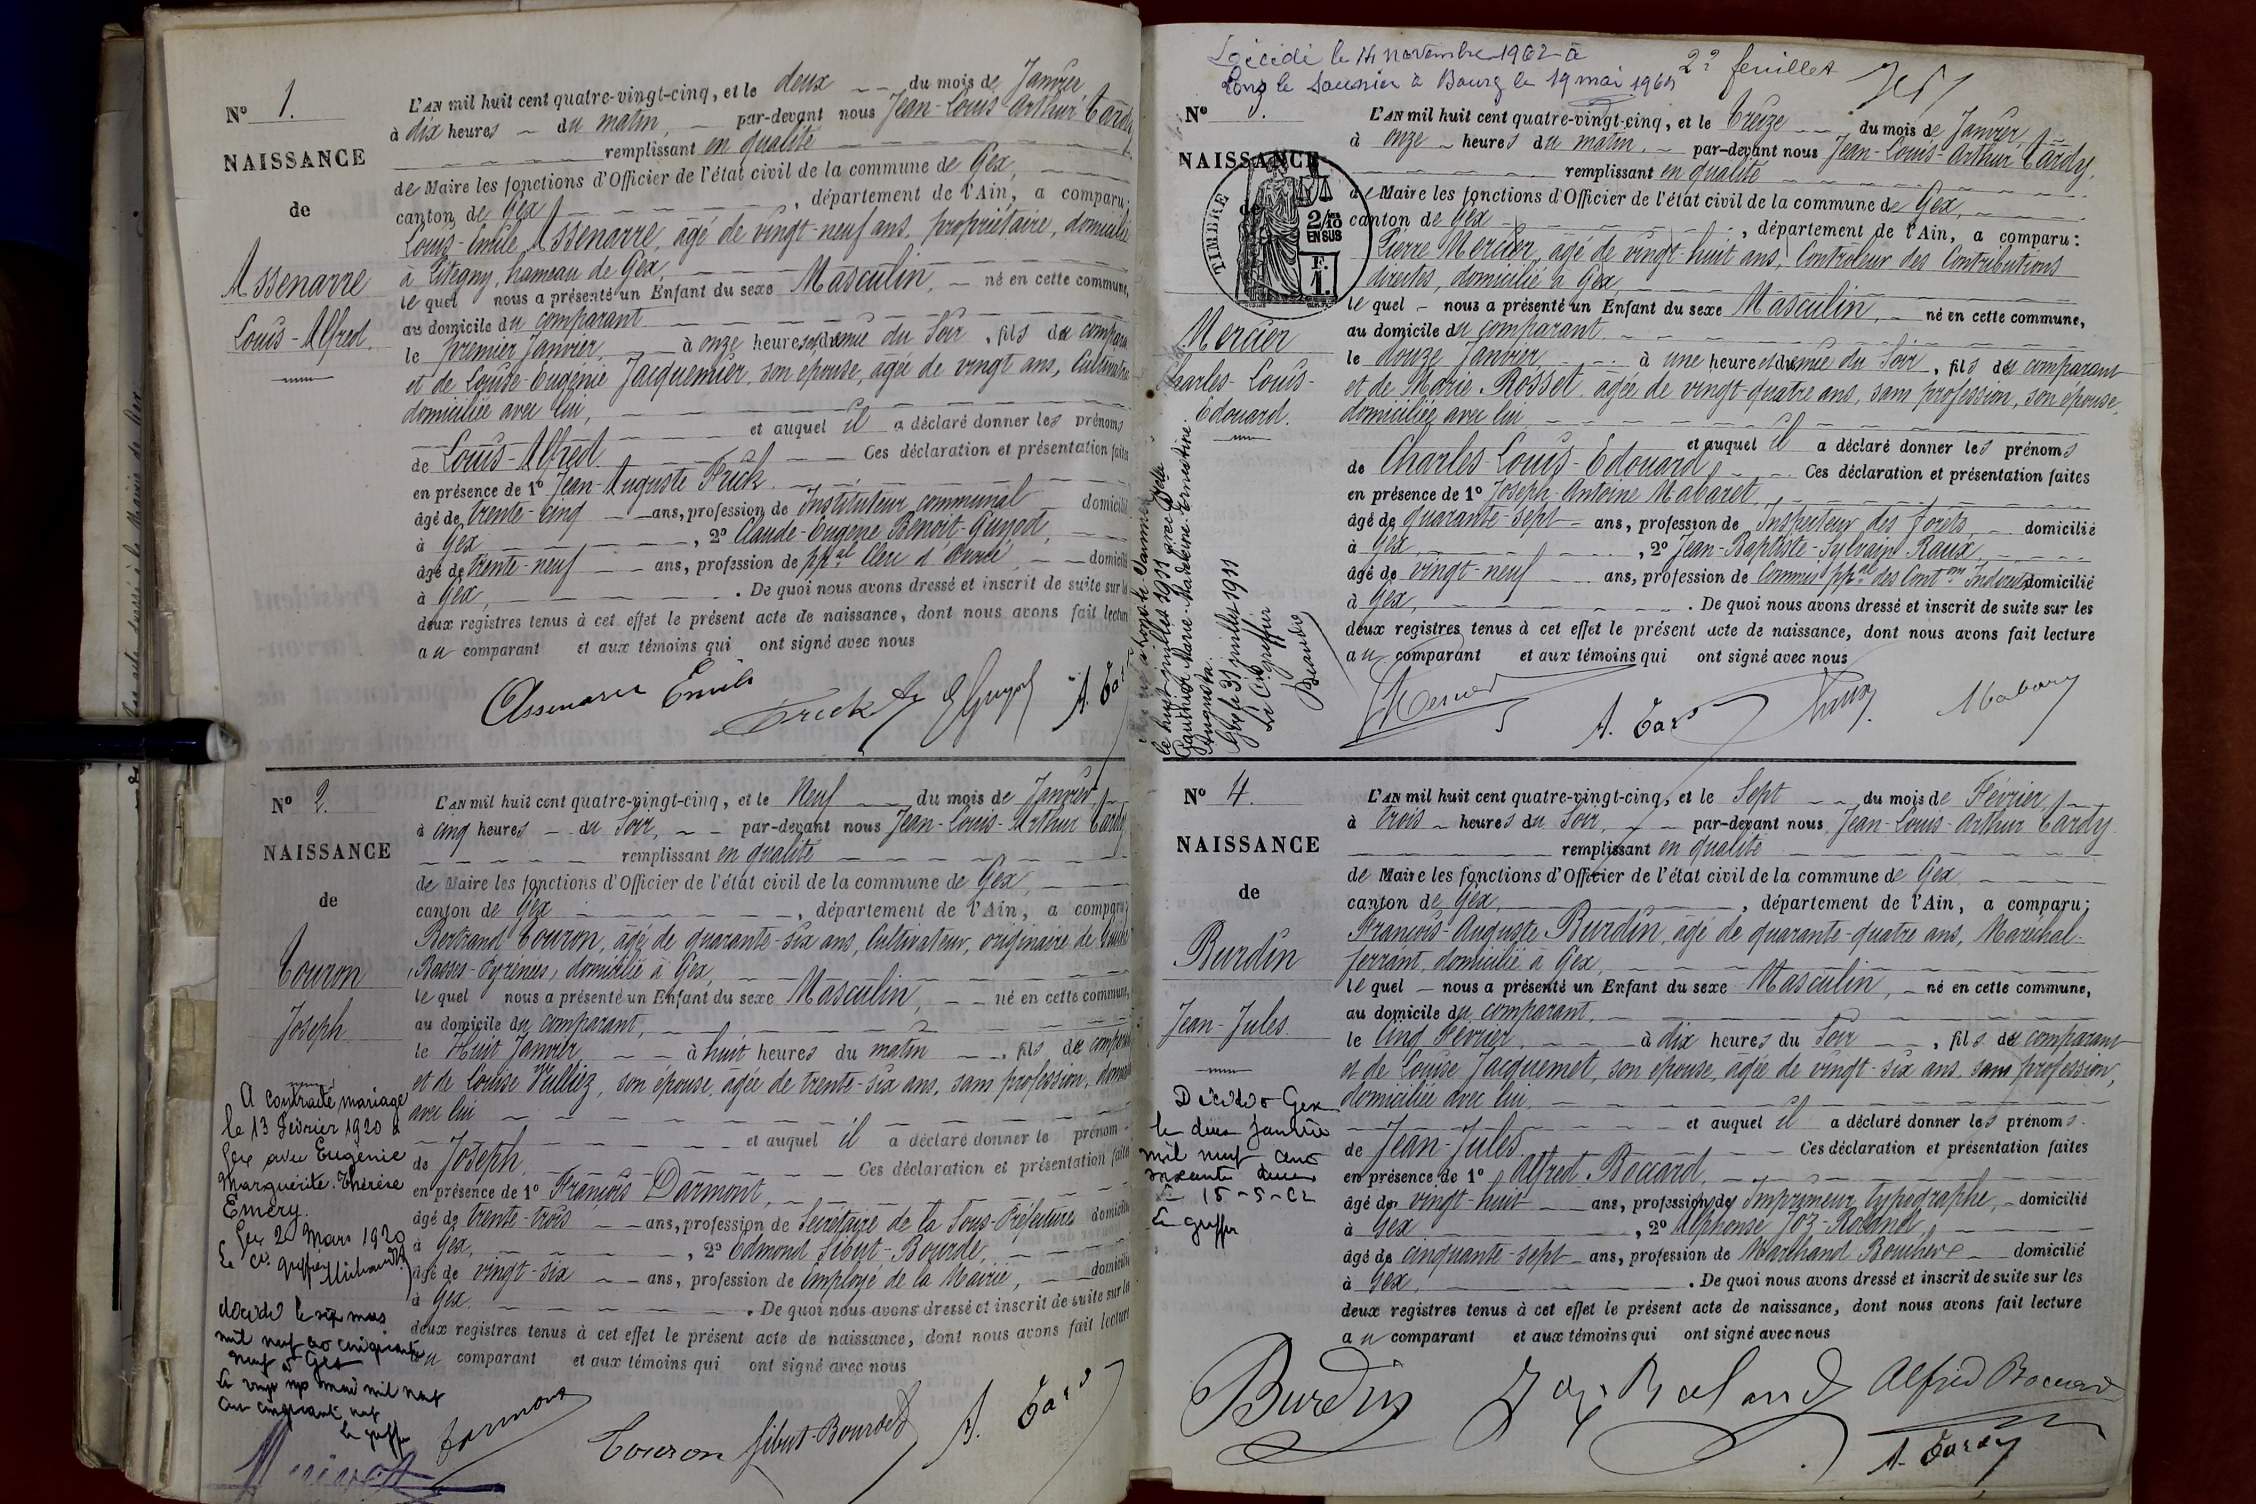 N° 1.
NAISSANCE
de
Assenarre
Louis-Alfred.
L'AN mil huit cent quatre-vingt-cinq, et le deux du mois de Janvier
à dix heures du matin, par-devant nous Jean-Louis Arthur Tardy
remplissant en qualité
de Maire les fonctions d'Officier de l'état civil de la commune de Gex,
canton de Gex, département de l'Ain, a comparu:
Louis-Emile Assenarre, âgé de vingt-neuf ans, propriétaire, domicilié
à Pitegny, hameau de Gex,
le quel nous a présenté un Enfant du sexe Masculin, né en cette commune,
au domicile du comparant
le premier Janvier, à onze heures et demie du Soir, fils du
et de Louise-Eugénie Jacquemier, son épouse, âgée de vingt ans,
domiciliée avec lui,
et auquel il a déclaré donner les prénoms
de Louis-Alfred. Ces déclaration et présentation faites
en présence de 1° Jean-Auguste Frick
âgé de trente-cinq ans, profession de Instituteur communal domicilié
à Gex, 2° Claude-Eugène Benoit-Guyod,
âgé de trente-neuf ans, profession de ppal Clerc d'avoué, domicilié
à Gex, . De quoi nous avons dressé et inscrit de suite sur les
deux registres tenus à cet effet le présent acte de naissance, dont nous avons fait lecture
au comparant et aux témoins qui ont signé avec nous
Assenarre Emile Frick
N° 2.
NAISSANCE
de
Couron
Joseph
L'AN mil huit cent quatre-vingt-cinq, et le Neuf du mois de Janvier
à cinq heures du Soir, par-devant nous Jean-Louis-Arthur Tardy
remplissant en qualité
de Maire les fonctions d'Officier de l'état civil de la commune de Gex,
canton de Gex, département de l'Ain, a comparu:
Bertrand Couron, âgé de quarante-six ans, Cultivateur, originaire de
(Basses-Pyrénées) domicilié à Gex,
le quel nous a présenté un Enfant du sexe Masculin, né en cette commune,
au domicile du comparant,
le Huit Janvier à huit heures du matin, fils du comparant
et de Louise Vulliez, son épouse, âgée de trente-six ans, sans profession,
avec lui
et auquel il a déclaré donner le prénom
de Joseph. Ces déclaration et présentation faites
en présence de 1° François Darmont,
âgé de trente-trois ans, profession de Secrétaire de la Sous-Préfecture domicilié
à Gex, 2° Edmond Sibut-Bourde,
âgé de vingt-six ans, profession de Employé de la Mairie, domicilié
à Gex. De quoi nous avons dressé et inscrit de suite sur les
deux registres tenus à cet effet le présent acte de naissance, dont nous avons fait lecture
au comparant et aux témoins qui ont signé avec nous
A contracté mariage
le 13 Février 1920 à
Gex avec Eugénie
Marguerite-Thérèse
Emery.
Gex 2 Mars 1920
Le Cis greffier
décédé le six mars
mil neuf cent cinquante
neuf à Gex
Le greffier
Darmont Couron Sibut-Bourde A. Tardy
Décédé le 14 novembre 1962 à
Lons le Saunier à Bourg le 19 mai 196
2e feuillet
N° 3.
NAISSANCE
de
TIMBRE
2/10 EN SUS
F. 1.
Mercier
Charles-Louis-
Edouard.
L'AN mil huit cent quatre-vingt-cinq, et le treize du mois de Janvier,
à onze heures du matin, par-devant nous Jean-Louis-Arthur Tardy,
remplissant en qualité
de Maire les fonctions d'Officier de l'état civil de la commune de Gex,
canton de Gex, département de l'Ain, a comparu:
Pierre Mercier, âgé de vingt-huit ans, Contrôleur des Contributions
directes, domicilié à Gex,
le quel nous a présenté un Enfant du sexe Masculin, né en cette commune,
au domicile du comparant.
le douze Janvier, à une heure et demie du Soir, fils du comparant
et de Marie Rosset âgée de vingt-quatre ans, sans profession, son épouse,
domiciliée avec lui
et auquel il a déclaré donner les prénoms
de Charles-Louis-Edouard, Ces déclaration et présentation faites
en présence de 1° Joseph-Antoine Mabaret,
âgé de quarante-sept ans, profession de Inspecteur des forêts, domicilié
à Gex, 2° Jean-Baptiste-Sylvain Raux
âgé de vingt-neuf ans, profession de Commis ppal des Conton Indirectes domicilié
à Gex, . De quoi nous avons dressé et inscrit de suite sur les
deux registres tenus à cet effet le présent acte de naissance, dont nous avons fait lecture
au comparant et aux témoins qui ont signé avec nous
le huit juillet 1911 avec Delle
Marie-Madeleine-Ernestine-
Augusta.
Gex le 31 juillet 1911
Le Cis greffier
Mercier A. Tardy Raux Mabaret
N° 4.
NAISSANCE
de
Burdin
Jean-Jules.
L'AN mil huit cent quatre-vingt-cinq, et le Sept du mois de Février,
à trois heures du Soir, par-devant nous Jean-Louis-Arthur Tardy
remplissant en qualité
de Maire les fonctions d'Officier de l'état civil de la commune de Gex
canton de Gex, département de l'Ain, a comparu:
François-Auguste Burdin, âgé de quarante-quatre ans, Maréchal-
ferrant, domicilié à Gex,
le quel nous a présenté un Enfant du sexe Masculin, né en cette commune,
au domicile du comparant,
le Cinq Février, à dix heures du Soir, fils du comparant
et de Louise Jacquemet, son épouse, âgée de vingt-six ans, sans profession,
domiciliée avec lui,
et auquel il a déclaré donner les prénoms
de Jean-Jules. Ces déclaration et présentation faites
en présence de 1° Alfred Boccard,
âgé de vingt-huit ans, profession de Imprimeur typographe, domicilié
à Gex, 2° Alphonse Joz-Roland,
âgé de cinquante-sept ans, profession de Marchand Boucher domicilié
à Gex, . De quoi nous avons dressé et inscrit de suite sur les
deux registres tenus à cet effet le présent acte de naissance, dont nous avons fait lecture
au comparant et aux témoins qui ont signé avec nous
Décédé à Gex
le deux janvier
mil neuf cent
soixante deux
Le 15-5-62
Le greffier
Burdin Joz-Roland Alfred Boccard
A. Tardy